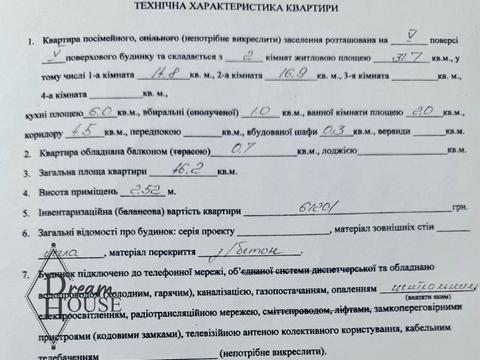 ТЕХНІЧНА ХАРАКТЕРИСТИКА КВАРТИРИ
1. Квартира посімейного, спільного (непотрібне викреслити) заселення розташована на V поверсі
V поверхового будинку та складається з 2 кімнат житловою площею 31.7 кв.м., у
тому числі 1-а кімната 14.8 кв. м., 2-а кімната 16.9 кв. м., 3-я кімната кв. м.,
4-а кімната кв. м.,
кухні площею 6.0 кв.м., вбиральні (сполученої) 1.0 кв.м., ванної кімнати площею 2.0 кв.м.,
коридору 4.5 кв.м., передпокою кв.м., вбудованої шафи 0.3 кв.м., веранди кв.м.
2. Квартира обладнана балконом (терасою) 0.7 кв.м., лоджією кв.м.
3. Загальна площа квартири 46.2 кв.м
4. Висота приміщень 2.52 м.
5. Інвентаризаційна (балансова) вартість квартири 61201 грн.
6. Загальні відомості про будинок: серія проекту , матеріал зовнішніх стін
, матеріал перекриття з/бетон.
7. Будинок підключено до телефонної мережі, об'єднаної системи диспетчерської та обладнано
водопроводом (холодним, гарячим), каналізацією, газопостачанням, опаленням
(вказати яким)
електроосвітленням, радіотрансляційною мережею, сміттєпроводом, ліфтами, замкоперегорівними
пристроями (кодовими замками), телевізійною антеною колективного користування, кабельним
телебаченням (непотрібне викреслити).
Dream
HOUSE